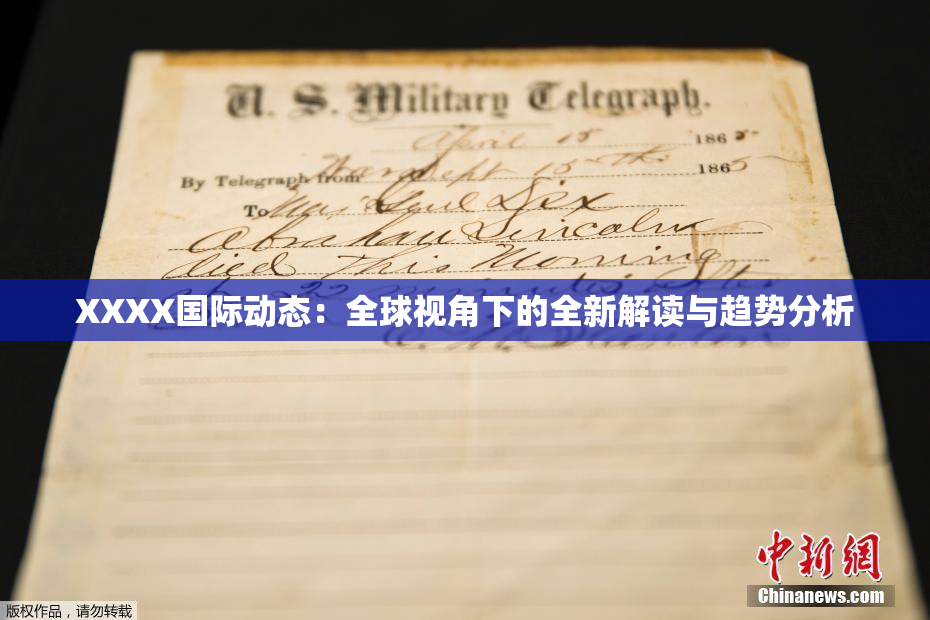 U. S. Military Telegraph.
April 15 1865
By Telegraph from War Dept 15th 1865
To Maj Genl Dix
Abraham Lincoln
died This Morning
22 minutes after
XXXX国际动态：全球视角下的全新解读与趋势分析
E. M. Stanton
中新网
Chinanews.com
版权作品，请勿转载